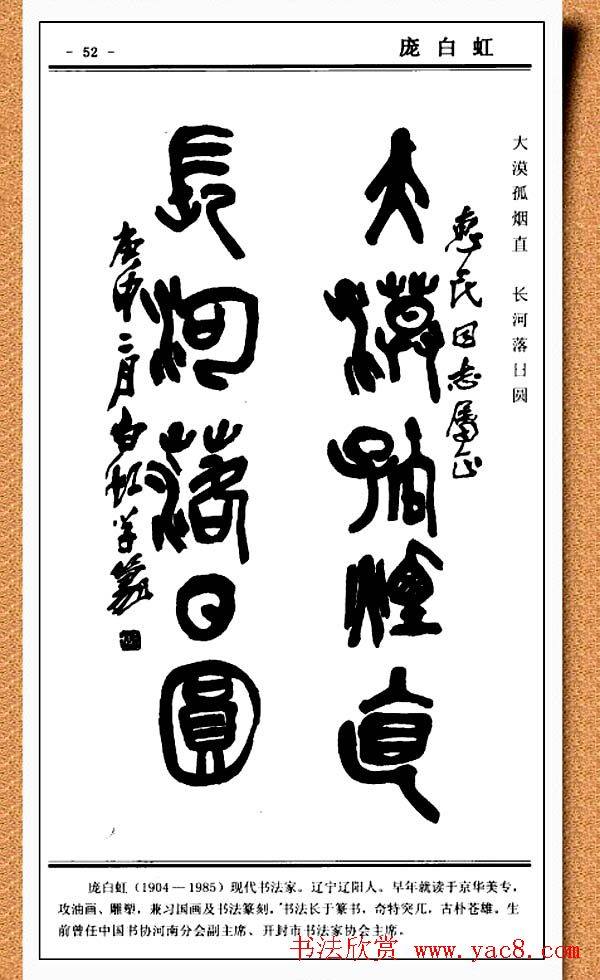 - 52 -
庞白虹
大漠孤烟直 长河落日圆
惠民同志属正
大漠孤煙直
長河落日圓
庚申二月白虹学篆
庞白虹(1904—1985)现代书法家。辽宁辽阳人。早年就读于京华美专,
攻油画、雕塑,兼习国画及书法篆刻,书法长于篆书,奇特突兀,古朴苍雄。生
前曾任中国书协河南分会副主席、开封市书法家协会主席。
书法欣赏 www.yac8.com